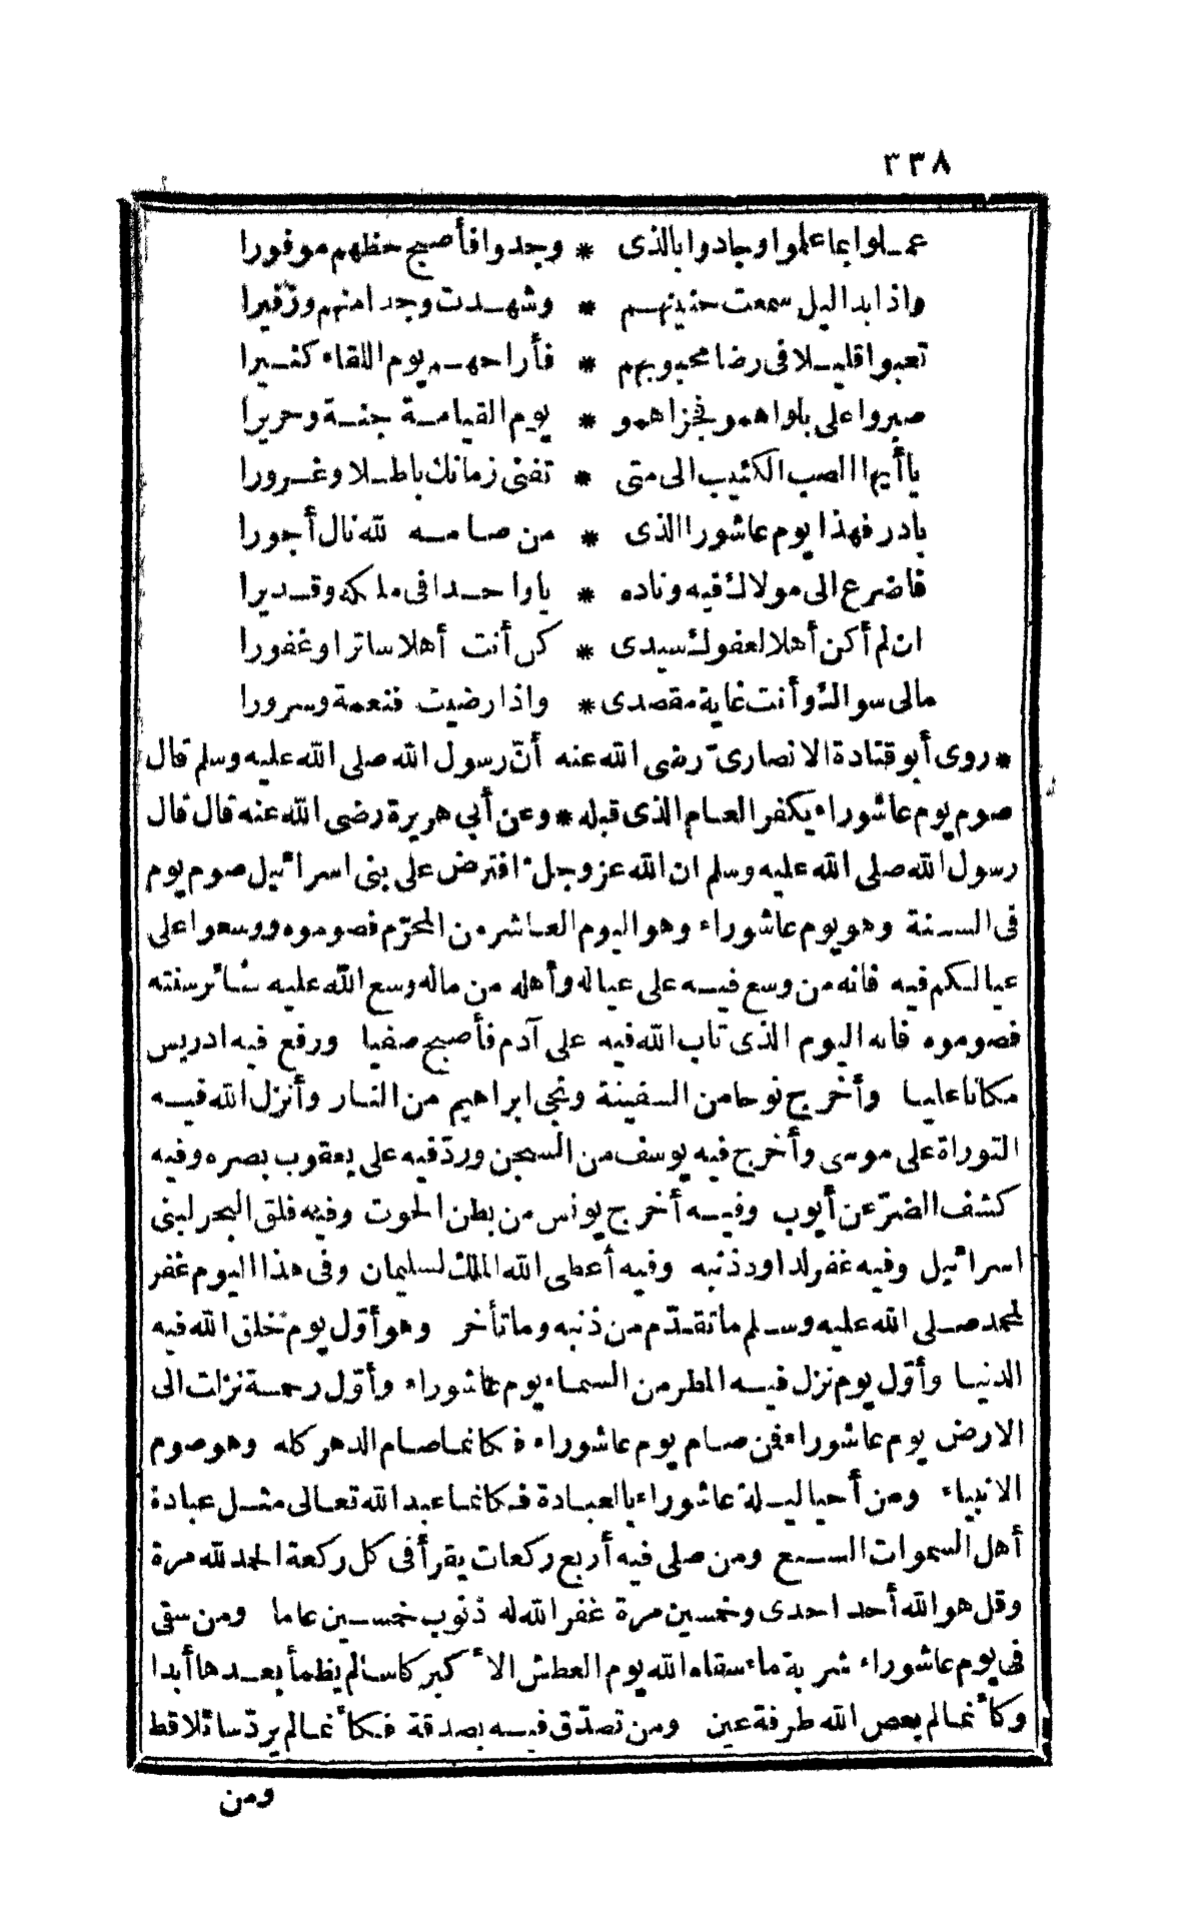 ٣٣٨
عملوا بما علموا وجادوا بالذى * وجدوا فأصبح حظهم موفورا
واذا بدا ليل سمعت حنينهم * وشهدت وجدا منهم وزفيرا
تعبوا قليلا فى رضا محبوبهم * فأراحهم يوم اللقاء كثيرا
صبروا على بلواهمو فجزاهمو * يوم القيامة جنة وحريرا
يا أيها الصب الكئيب الى متى * تفنى زمانك باطلا وغرورا
بادر فهذا يوم عاشورا الذى * من صامه لله نال أجورا
فاضرع الى مولاك فيه وناده * يا واحدا فى ملكه وقديرا
ان لم أكن أهلا لعفوك سيدى * كن أنت أهلا ساترا وغفورا
مالى سواك وأنت غاية مقصدى * واذا رضيت فنعمة وسرورا
* روى أبو قتادة الانصارىّ رضى الله عنه أنّ رسول الله صلى الله عليه وسلم قال
صوم يوم عاشوراء يكفر العام الذى قبله * وعن أبي هريرة رضى الله عنه قال قال
رسول الله صلى الله عليه وسلم ان الله عز وجلّ افترض على بنى اسرائيل صوم يوم
فى السنة وهو يوم عاشوراء وهو اليوم العاشر من المحرّم فصوموه ووسعوا على
عيالكم فيه فانه من وسع فيه على عياله وأهله من ماله وسع الله عليه سائر سنته
فصوموه فانه اليوم الذى تاب الله فيه على آدم فأصبح صفيا ورفع فيه ادريس
مكانا عليا وأخرج نوحا من السفينة ونجى ابراهيم من النار وأنزل الله فيه
التوراة على موسى وأخرج فيه يوسف من السجن وردّ فيه على يعقوب بصره وفيه
كشف الضرّ عن أيوب وفيه أخرج يونس من بطن الحوت وفيه فلق البحر لبنى
اسرائيل وفيه غفر لداود ذنبه وفيه أعطى الله الملك لسليمان وفى هذا اليوم غفر
لمحمد صلى الله عليه وسلم ما تقدّم من ذنبه وما تأخر وهو أوّل يوم خلق الله فيه
الدنيا وأوّل يوم نزل فيه المطر من السماء يوم عاشوراء وأوّل رحمة نزلت الى
الارض يوم عاشوراء فمن صام يوم عاشوراء فكانما صام الدهر كله وهو صوم
الانبياء ومن أحيا ليلة عاشوراء بالعبادة فكانما عبد الله تعالى مثل عبادة
أهل السموات السبع ومن صلى فيه أربع ركعات يقرأ فى كل ركعة الحمد لله مرة
وقل هو الله أحد احدى وخمسين مرة غفر الله له ذنوب خمسين عاما ومن سقى
فى يوم عاشوراء شربة ماء سقاه الله يوم العطش الأكبر كاسا لم يظمأ بعدها أبدا
وكأنما لم يعص الله طرفة عين ومن تصدّق فيه بصدقة فكأنما لم يردّ سائلا قط
ومن